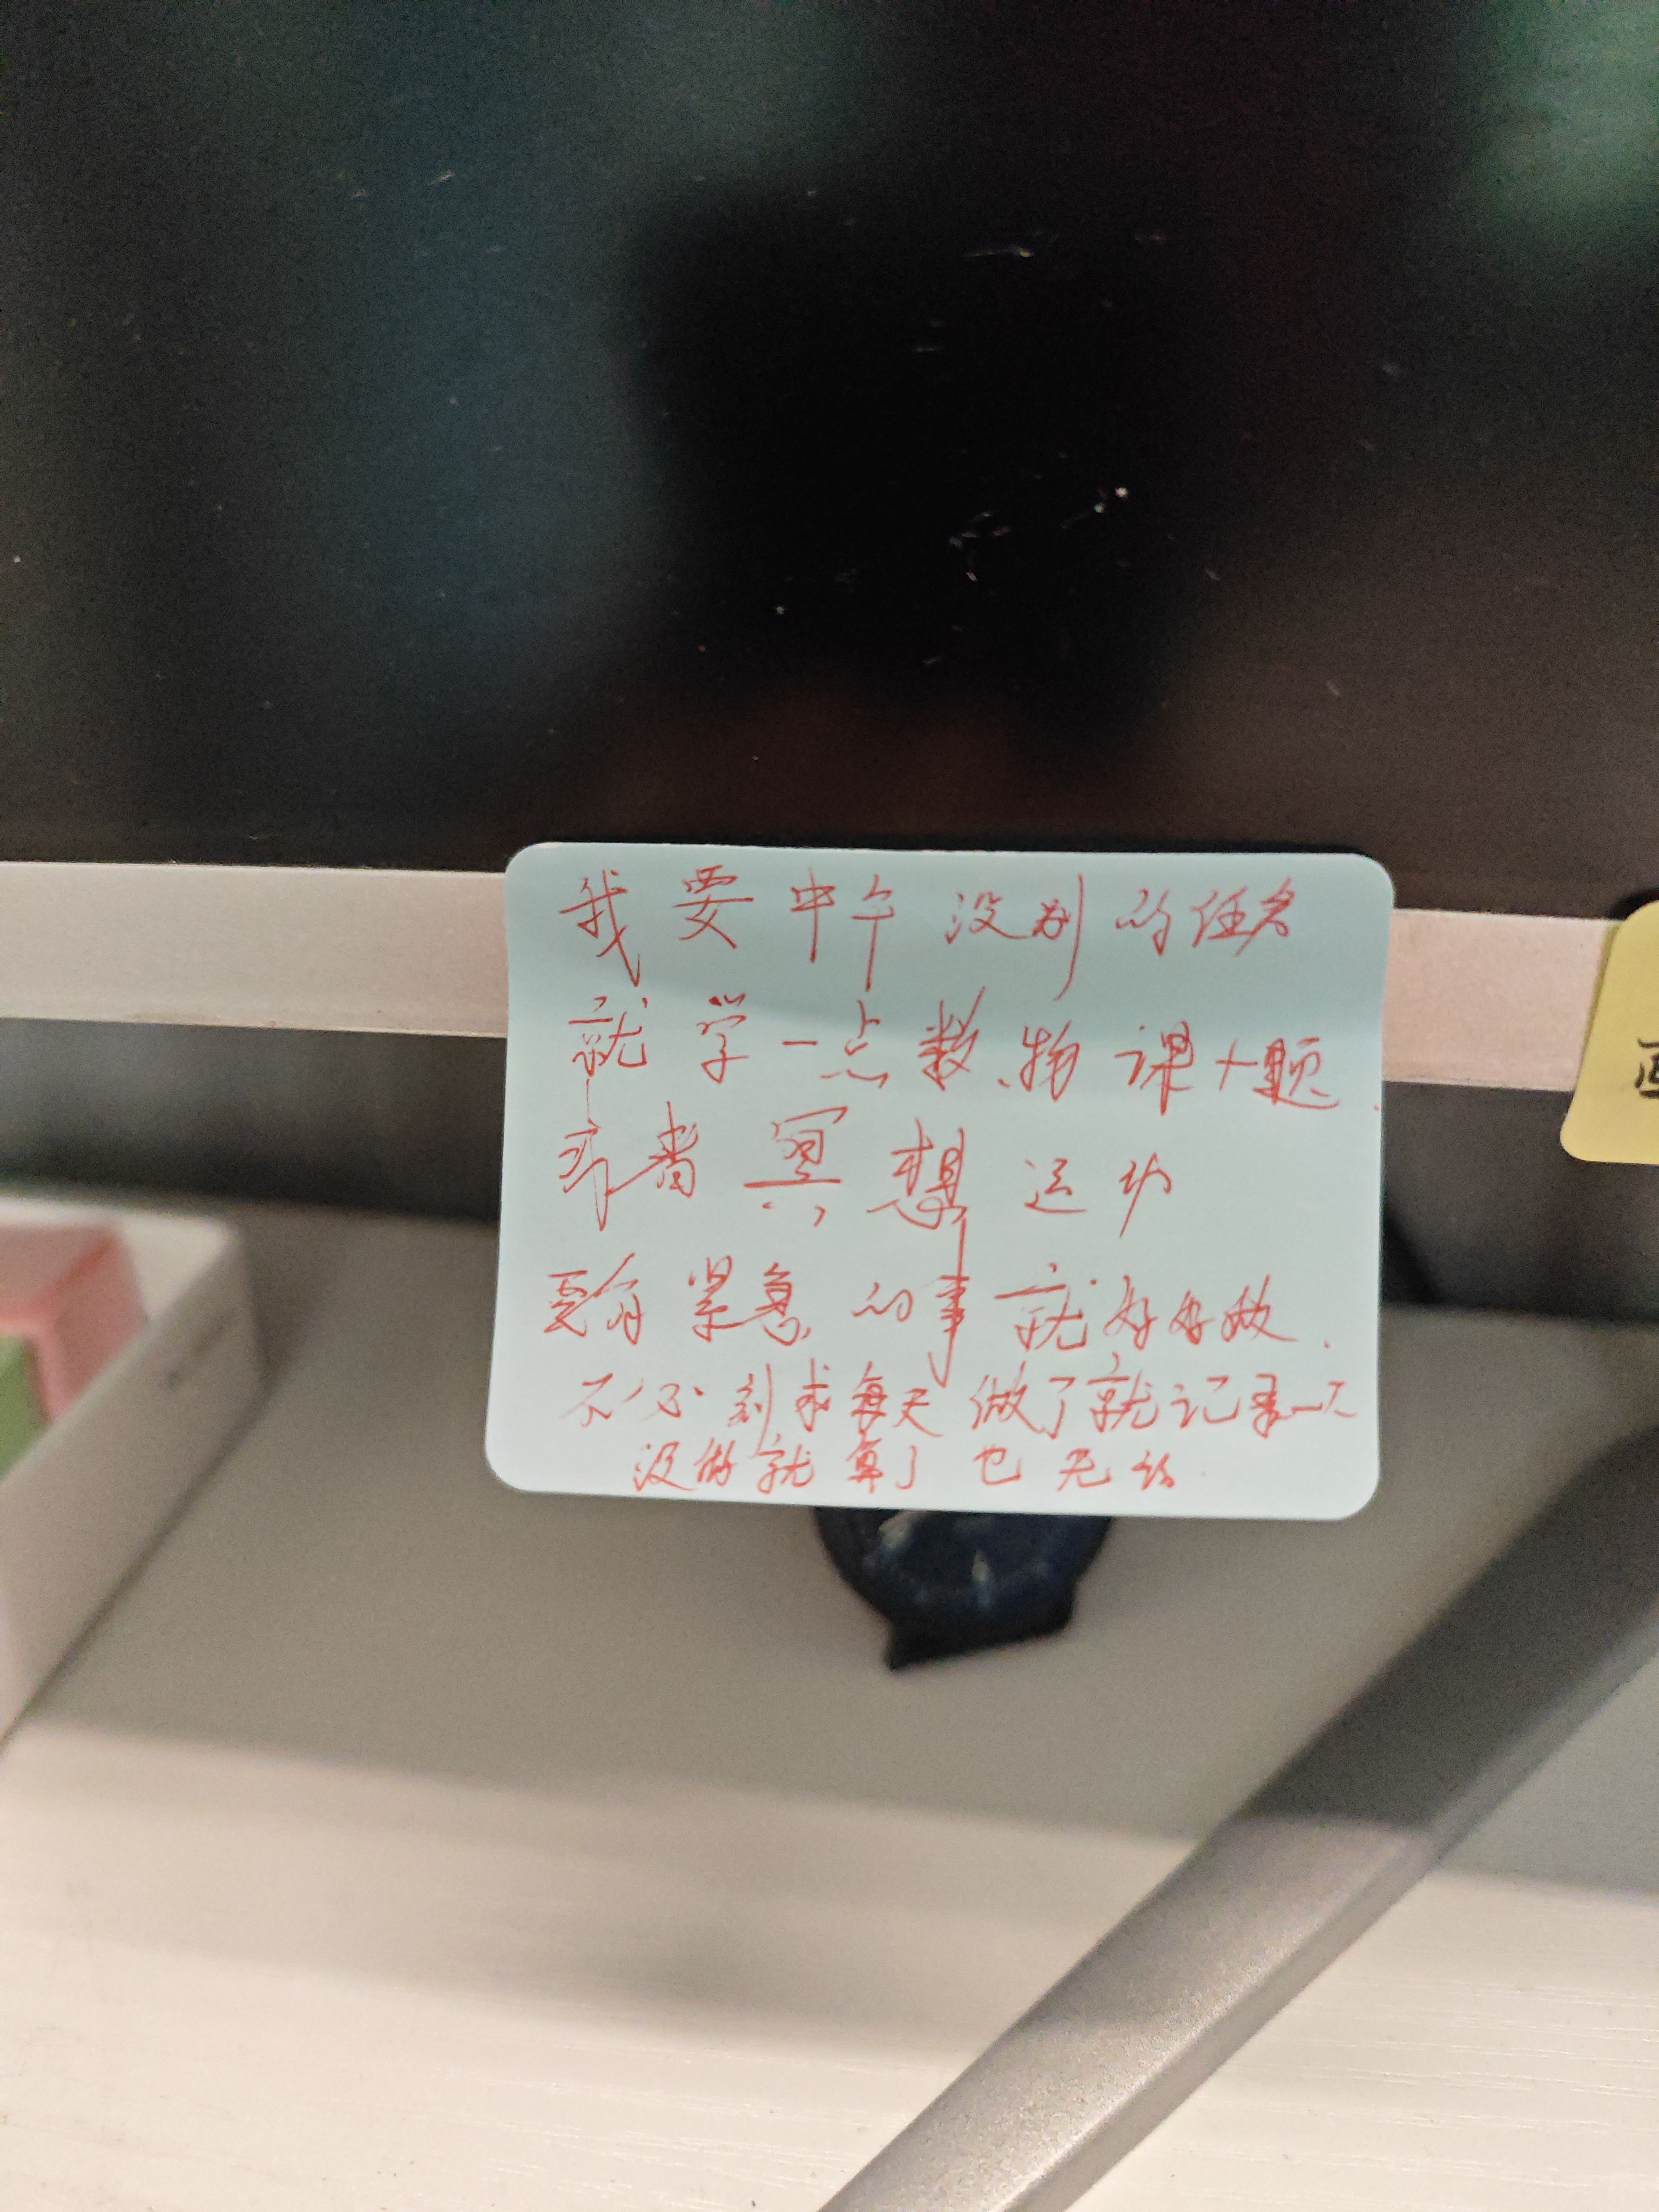 我要中午没别的任务
就学一点数、物 课+题.
或者冥想运动
要有紧急的事就好好做.
不必刻求每天 做了就记录一下
没做就算了也无妨.